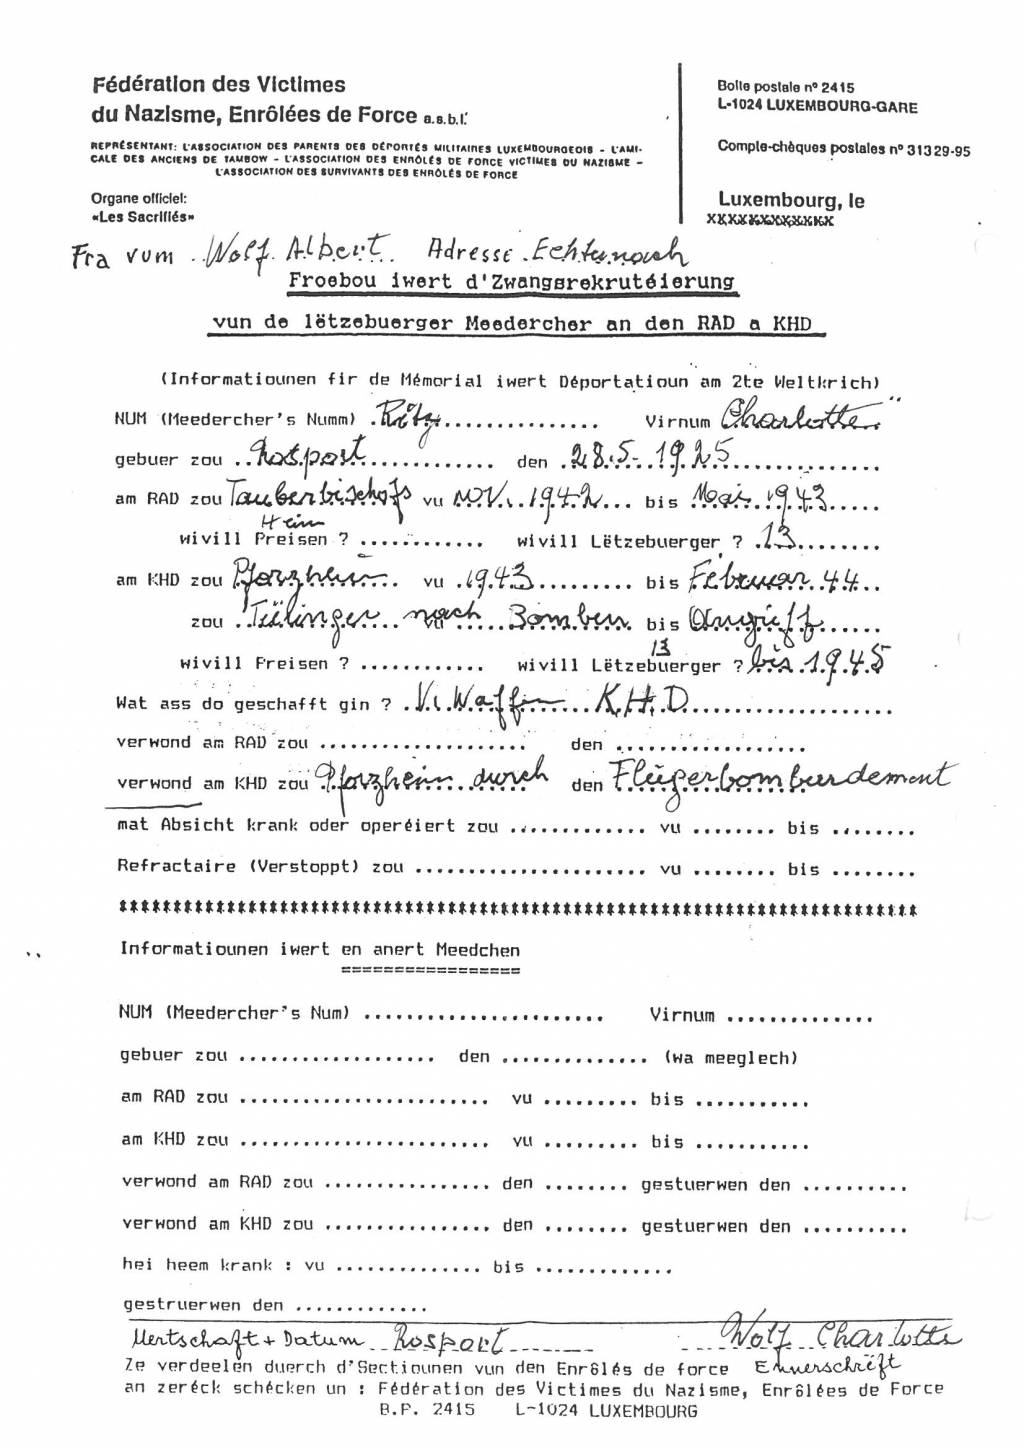 Fédération des Victimes
du Nazisme, Enrôlées de Force a.s.b.l.
REPRÉSENTANT: L'ASSOCIATION DES PARENTS DES DÉPORTÉS MILITAIRES LUXEMBOURGEOIS – L'AMI-
CALE DES ANCIENS DE TAMBOW – L'ASSOCIATION DES ENRÔLÉS DE FORCE VICTIMES DU NAZISME –
L'ASSOCIATION DES SURVIVANTS DES ENRÔLÉS DE FORCE
Organe officiel:
«Les Sacrifiés»
Boîte postale n° 2415
L-1024 LUXEMBOURG-GARE
Compte-chèques postales n° 31329-95
Luxembourg, le
XXXXXXXXXXXXX
Fra vum ..Wolf. Albert.. Adresse.Echternach
Froebou iwert d'Zwangsrekrutéierung
vun de lëtzebuerger Meedercher an den RAD a KHD
(Informatiounen fir de Mémorial iwert Déportatioun am 2te Weltkrich)
NUM (Meedercher's Numm) .Ritz............... Virnum Charlotte
gebuer zou ..Rosport............ den .28.5-1925..............
am RAD zou Tauberbischofs vu nov..1942... bis Mai.1943.....
Heim
wivill Preisen ? ............ wivill Lëtzebuerger ? .13........
am KHD zou Pforzheim.. vu .1943......... bis Februar.44..
zou .Tülinger...nach vu Bomben bis Angriff......
13
wivill Freisen ? ............ wivill Lëtzebuerger ? bis.1945
Wat ass do geschafft gin ? .V.Waffen....K.H.D...................
verwond am RAD zou .................... den ..................
verwond am KHD zou Pforzheim durch den Flügerbomburdement
mat Absicht krank oder operéiert zou ............. vu ........ bis ........
Refractaire (Verstoppt) zou ...................... vu ........ bis ........
**************************************************************************
Informatiounen iwert en anert Meedchen
=================
NUM (Meedercher's Num) ....................... Virnum ..............
gebuer zou ................... den .............. (wa meeglech)
am RAD zou ........................ vu ......... bis ...........
am KHD zou ........................ vu ......... bis ...........
verwond am RAD zou ................ den ........ gestuerwen den ..........
verwond am KHD zou ................ den ........ gestuerwen den ..........
hei heem krank : vu .............. bis .............
gestruerwen den .............
Uertschaft + Datum Rosport Wolf Charlotte
Ze verdeelen duerch d'Sectiounen vun den Enrôlés de force Ennerschrëft
an zeréck schécken un : Fédération des Victimes du Nazisme, Enrôlées de Force
B.P. 2415 L-1024 LUXEMBOURG